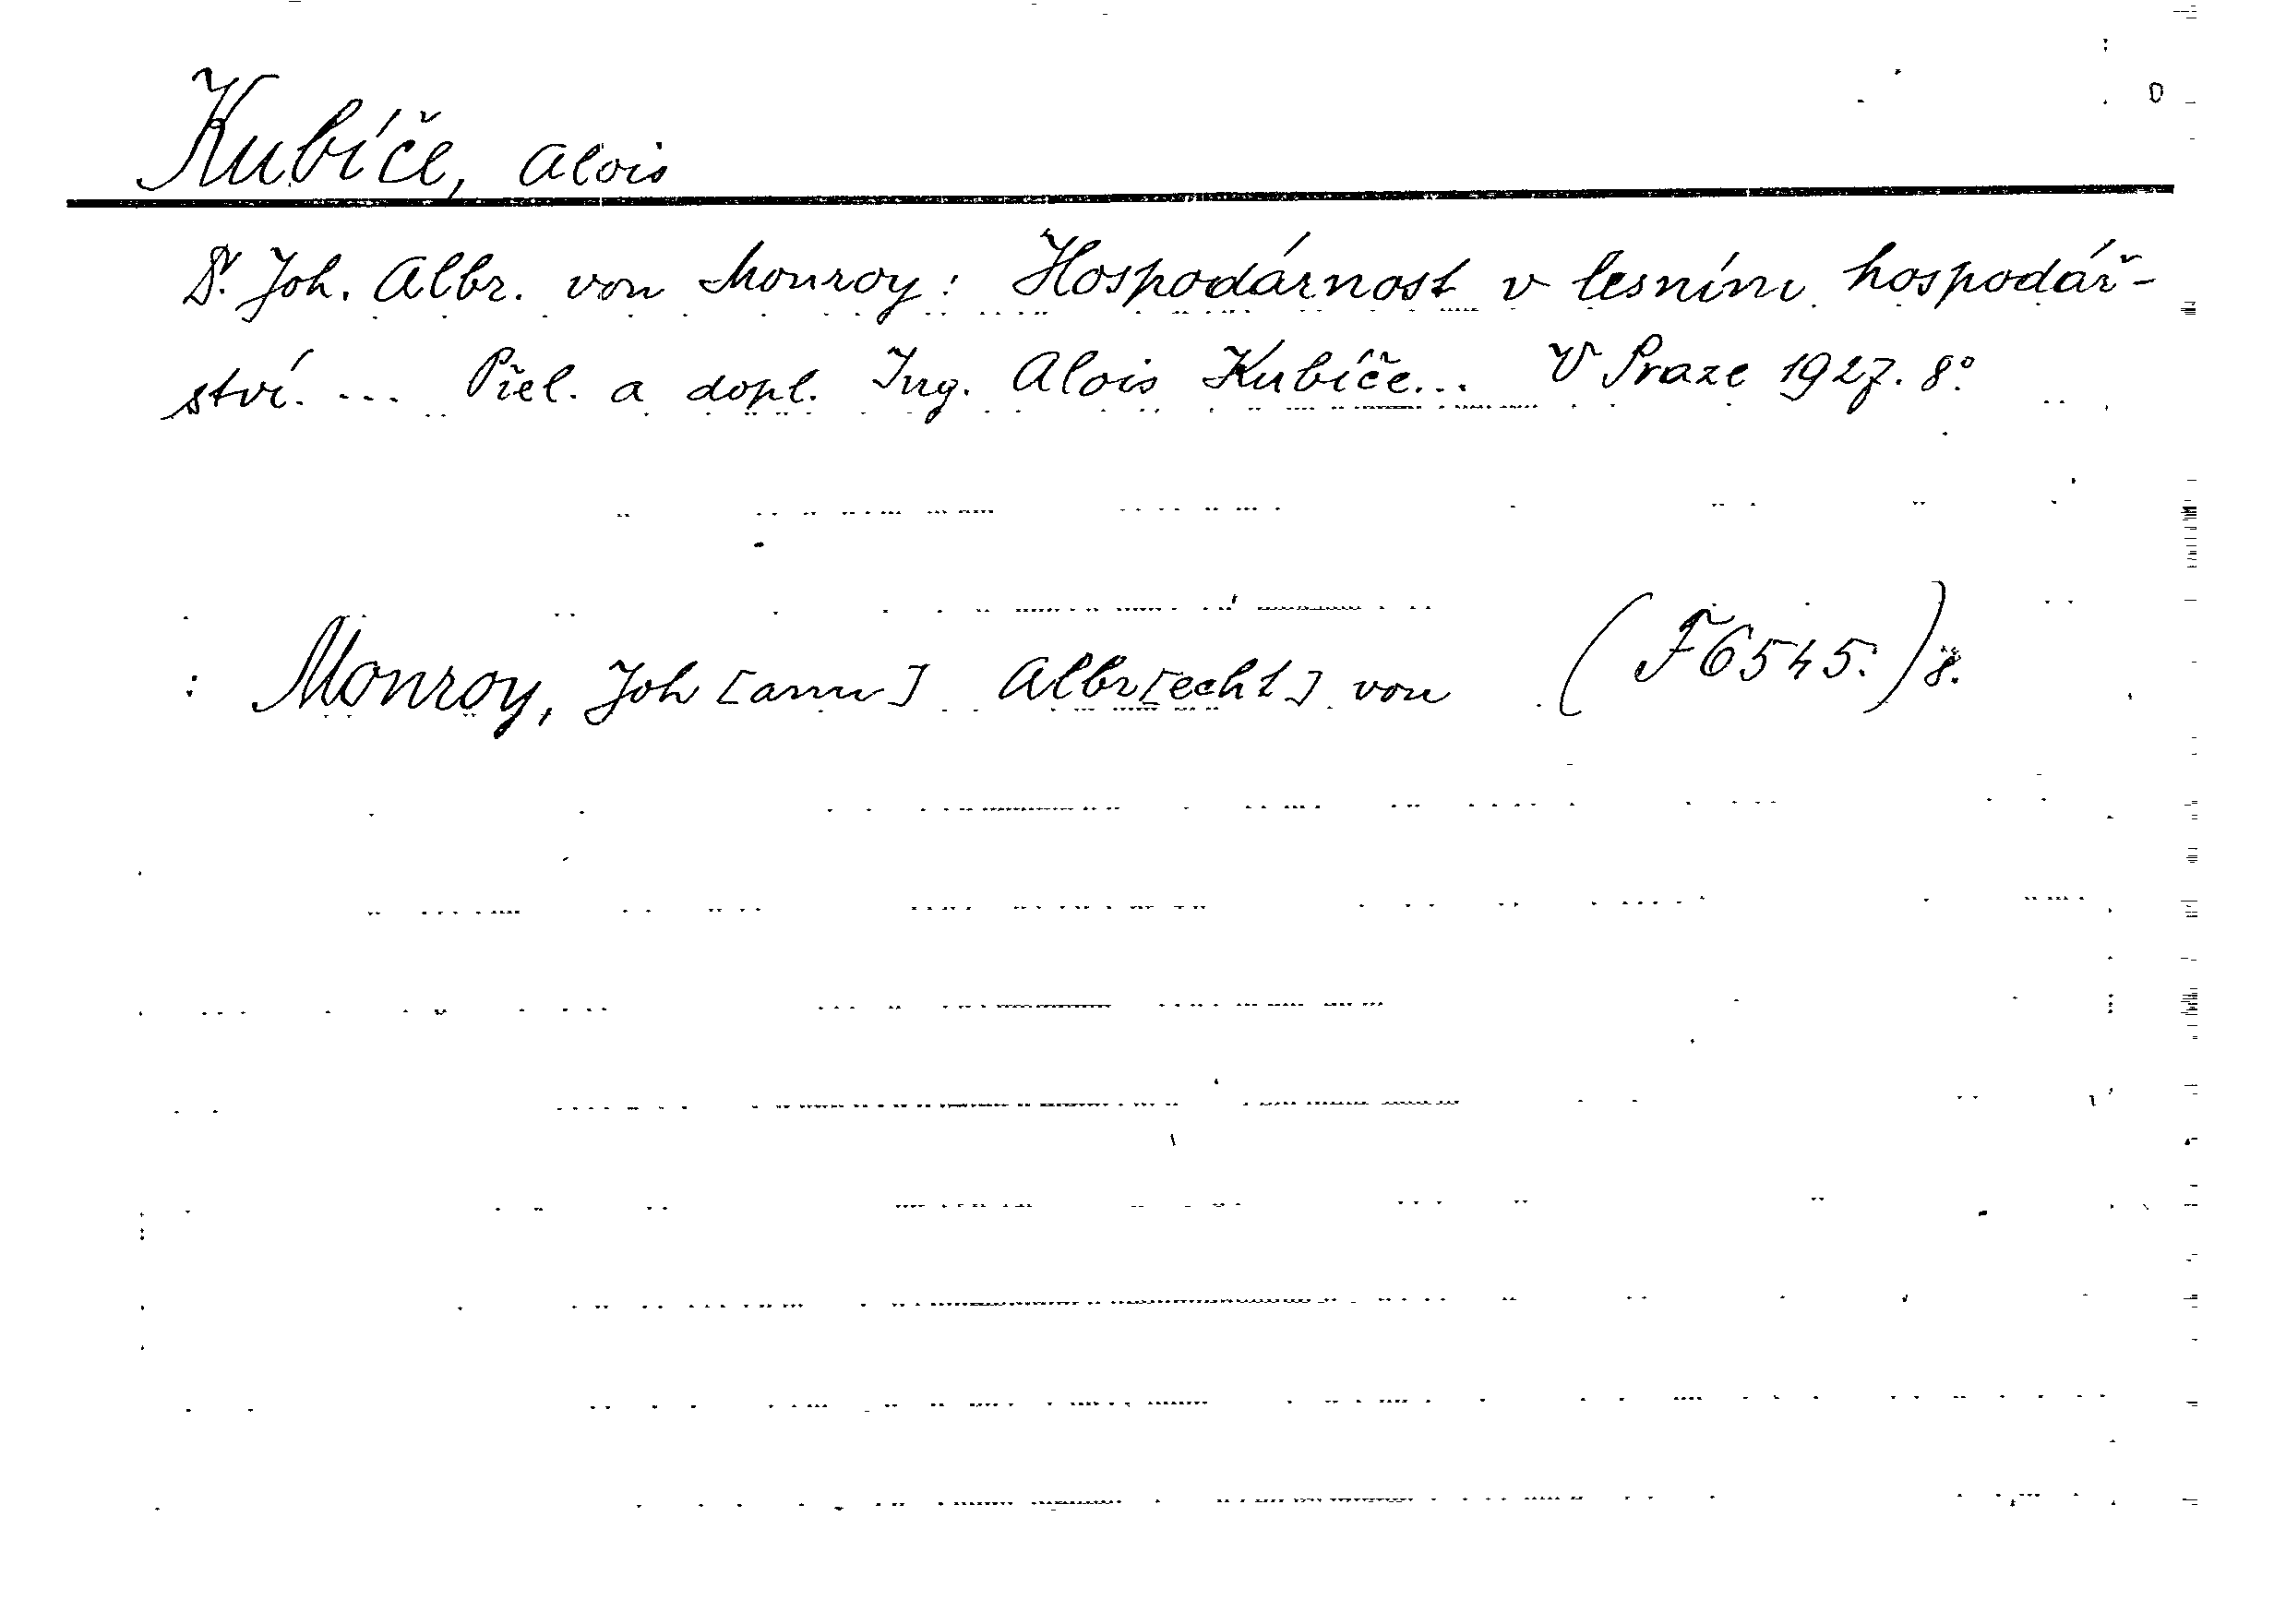 Kubíče, Alois
Dr. Joh. Albr. von Monroy: Hospodárnost v lesním hospodář-
ství. ... Přel. a dopl. Ing. Alois Kubíče... V Praze 1927. 8°.
: Monroy, Joh[ann] Albr[echt] von (F6545.) 8.